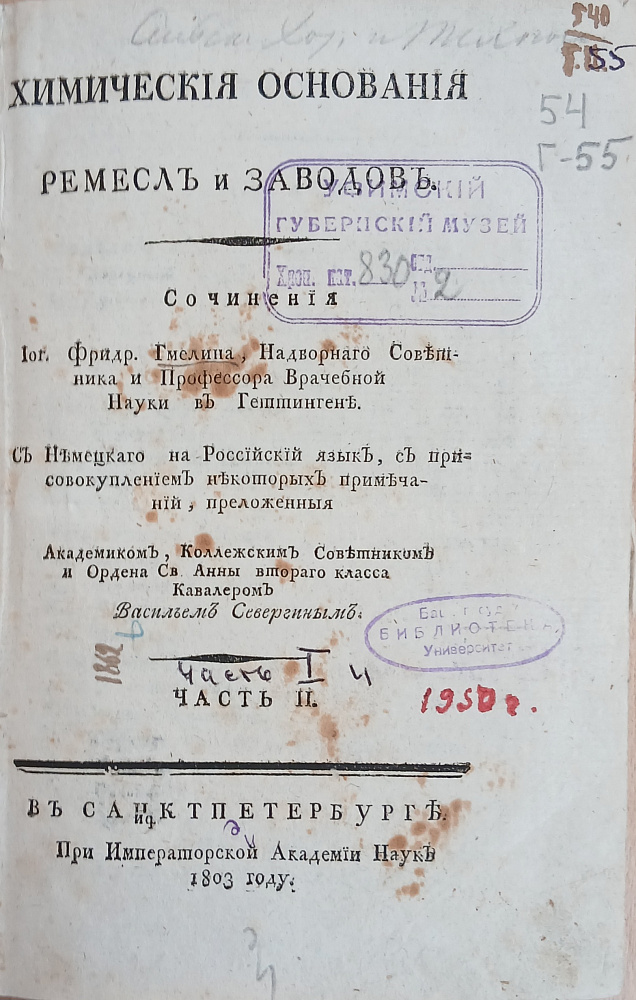 540
55
54
Г-55
ХИМИЧЕСКІЯ ОСНОВАНІЯ
РЕМЕСЛЪ и ЗАВОДОВЪ.
УФИМСКІЙ
ГУБЕРНСКІЙ МУЗЕЙ
Хрон. кат. 830 отд.
№ 2
Сочиненія
Іог. Фридр. Гмелина, Надворнаго Совѣт-
ника и Профессора Врачебной
Науки въ Геттингенѣ.
Съ Нѣмецкаго на Россійскій языкъ, съ при=
совокупленіемъ нѣкоторыхъ примѣча-
ній, преложенныя
Академикомъ, Коллежскимъ Совѣтникомъ
и Ордена Св. Анны втораго класса
Кавалеромъ
Васильемъ Севергинымъ.
БИБЛИОТЕКА
Университет
1862
Часть I и
ЧАСТЬ II.
1950 г.
ВЪ САНКТПЕТЕРБУРГѢ.
При Императорской Академіи Наукъ
1803 году.